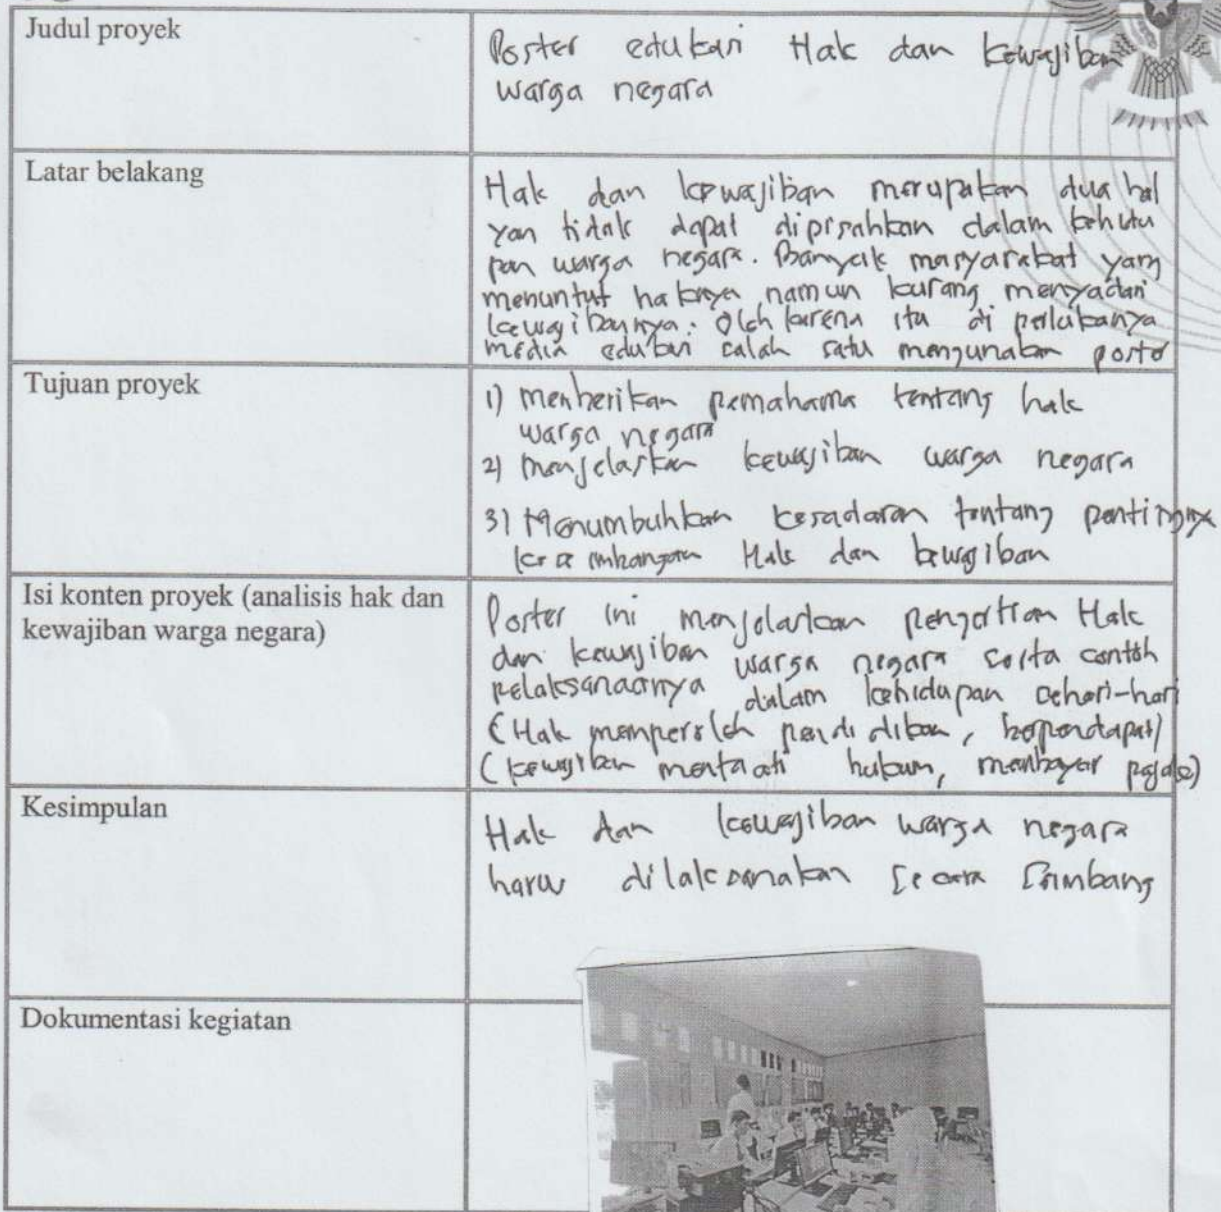 Judul proyek
Poster edukasi Hak dan kewajiban
warga negara
Latar belakang
Hak dan kewajiban merupakan dua hal
yan tidak dapat dipisahkan dalam kehidu
pan warga negara. Banyak masyarakat yang
menuntut haknya namun kurang menyadari
kewajibannya. Oleh karena itu di perlukanya
media edukasi salah satu mengunakan poster
Tujuan proyek
1) menberikan pemahama tentang hak
warga negara
2) menjelaskan kewajiban warga negara
3) Menumbuhkan kesadaran tentang pentingnya
Hak dan kewajiban
Isi konten proyek (analisis hak dan
kewajiban warga negara)
Poster ini menjelaskan pengertian Hak
dan kewajiban warga negara serta contoh
pelaksanaannya dalam kehidupan sehari-hari
(Hak memperoleh pendidikan, berpendapat)
(kewajiban mentaati hukum, membayar pajak)
Kesimpulan
Hak dan kewajiban warga negara
harus dilaksanakan secara seimbang
Dokumentasi kegiatan